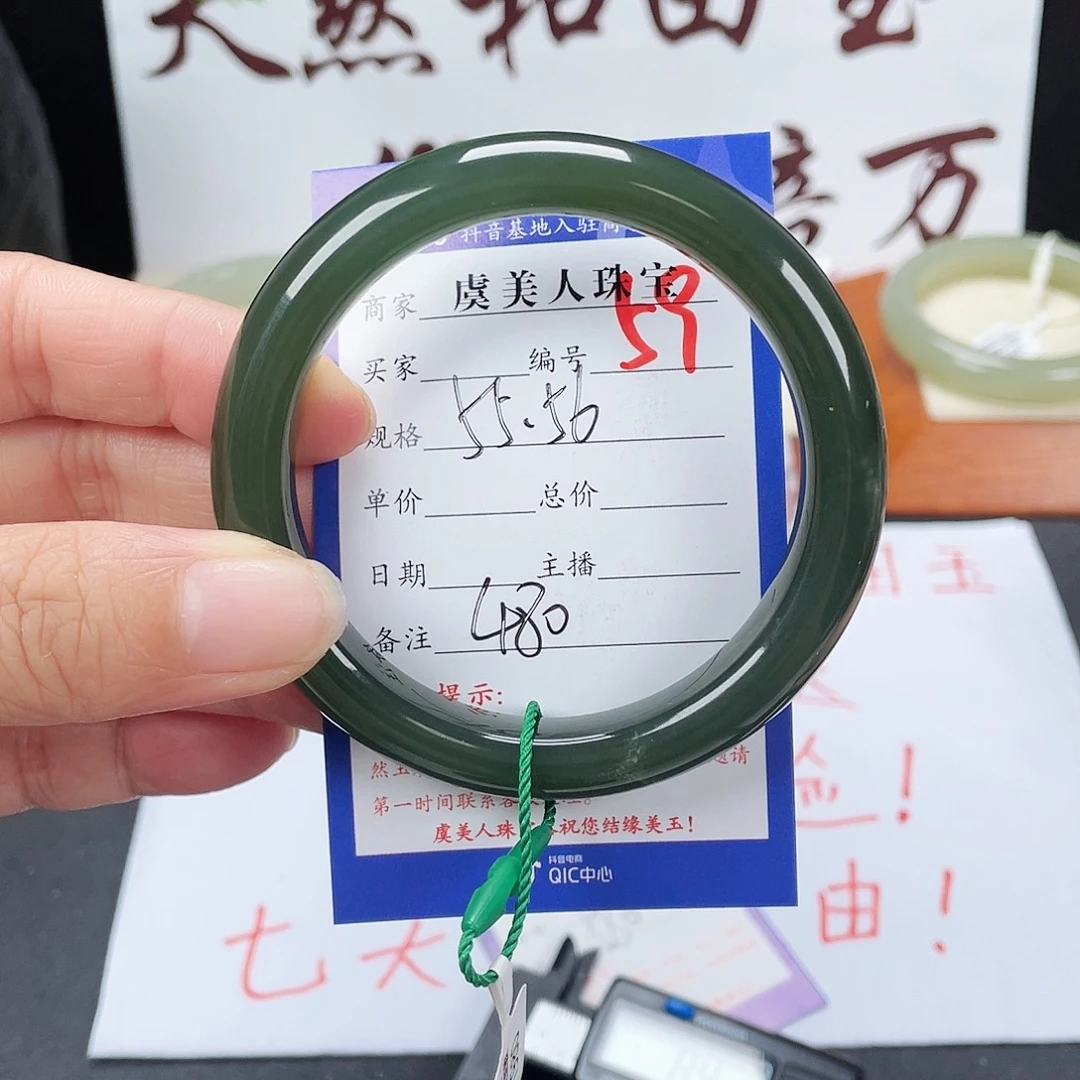 天然和田玉
倍万
抖音基地入驻商
商家 虞美人珠宝
买家 编号 59
规格 55.56
单价 总价
日期 主播
备注 480
提示:
然玉
邀请
第一时间联系客
虞美人珠 祝您结缘美玉!
抖音电商
QIC中心
田玉
!
七大 由!